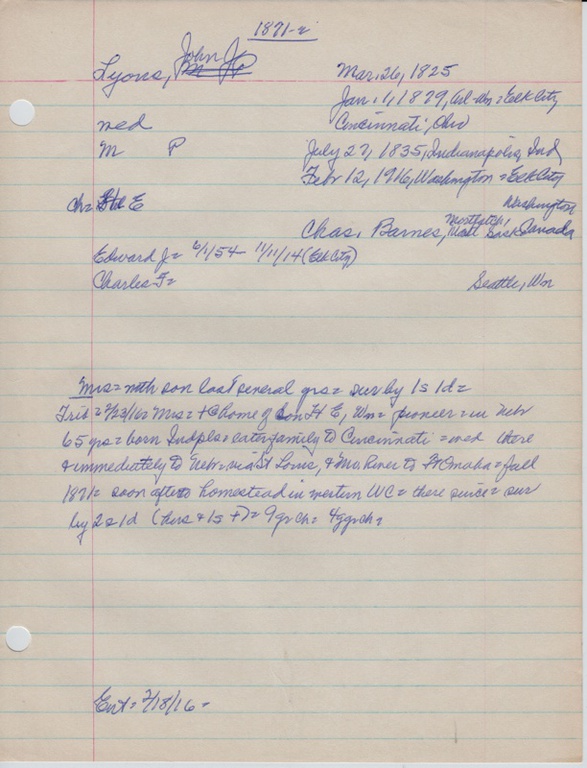 1871-2
Lyons, John J
Mar. 26, 1825
Jan. 1, 1879, Wn = Elk City
med
Cincinnati, Ohio
M P
July 27, 1835, Indianapolis, Ind
Feb 12, 1916, Washington = Elk City
ch = E
Washington
Chas. Barnes, Sask Canada
Edward J = 6/1/54 - 11/11/14 (Elk City)
Charles F =
Seattle, Wn
Mrs = with son last several yrs = sur by 1s 1d =
Trib = 2/23/16 = Mrs = + @ home of son H E, Wn = pioneer = in Nebr
65 yrs = born Indpls = later family to Cincinnati = med there
& immediately to Nebr = via St Louis, & Mo River to Ft Omaha = fall
1871 = soon after to homestead in western WC = there since = sur
by 2s 1d (hers & 1s +) = 9 gr ch = 4 ggr ch =
Ent = 2/18/16 =